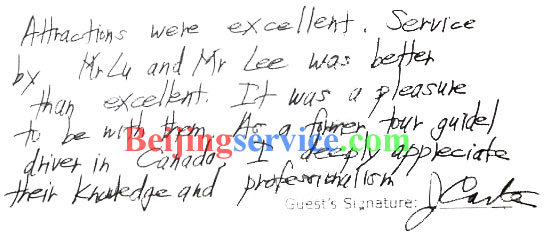 Attractions were excellent. Service
by Mr Lu and Mr Lee was better
than excellent. It was a pleasure
to be with them. As a former tour guide/
Beijingservice.com
driver in Canada, I deeply appreciate
their knowledge and professionalism
Guest's Signature: J Carter